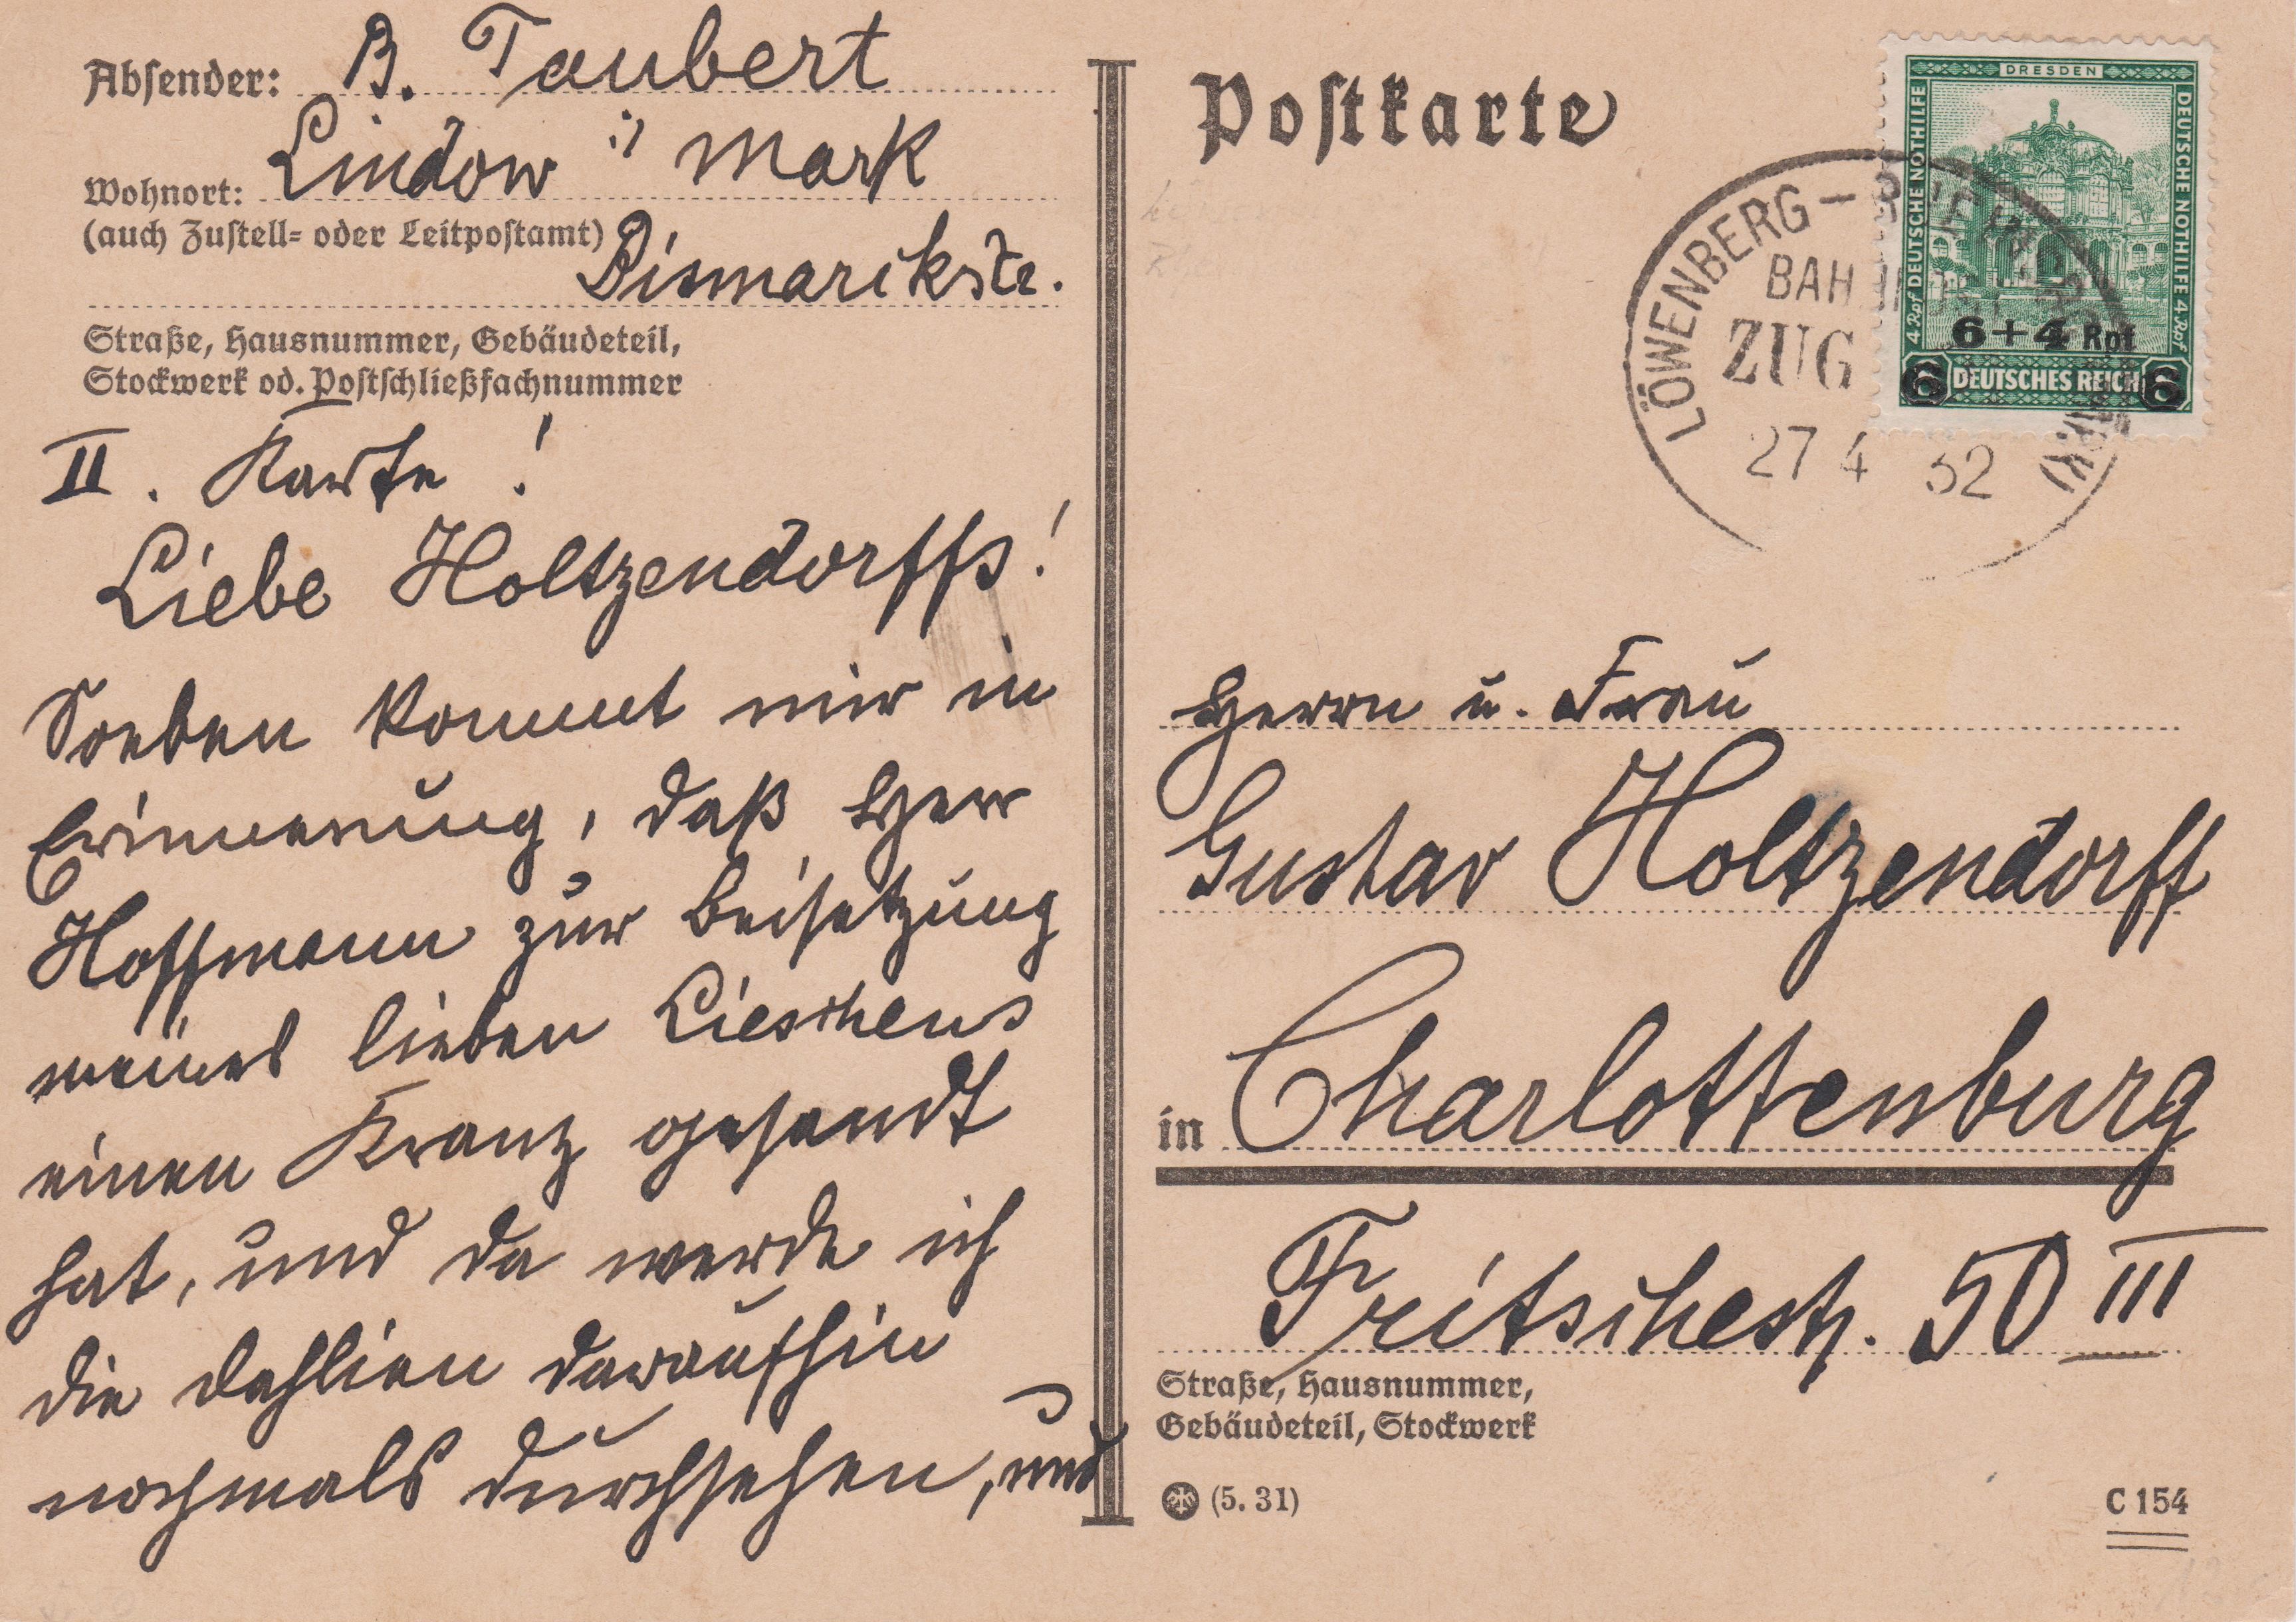 Absender: B. Taubert
Wohnort: Lindow i/ Mark
(auch Zustell- oder Leitpostamt)
Bismarckstr.
Straße, Hausnummer, Gebäudeteil,
Stockwerk od. Postschließfachnummer
II. Karte!
Liebe Holtzendorffs!
Soeben kommt mir in
Erinnerung, daß Herr
Hoffmann zur Beisetzung
meines lieben Lieschens
einen Kranz gesandt
hat, und da werde ich
die Dahlien daraufhin
nochmals durchsehen, und
Postkarte
DRESDEN
4 Rpf DEUTSCHE NOTHILFE
DEUTSCHE NOTHILFE 4 Rpf
6+4 Rpf
6 DEUTSCHES REICH 6
LÖWENBERG – (MARK)
BAHNPOST
ZUG
27 4 32
Herrn u. Frau
Gustav Holtzendorff
in Charlottenburg
Fritschestr. 50 III
Straße, Hausnummer,
Gebäudeteil, Stockwerk
(5. 31)
C 154